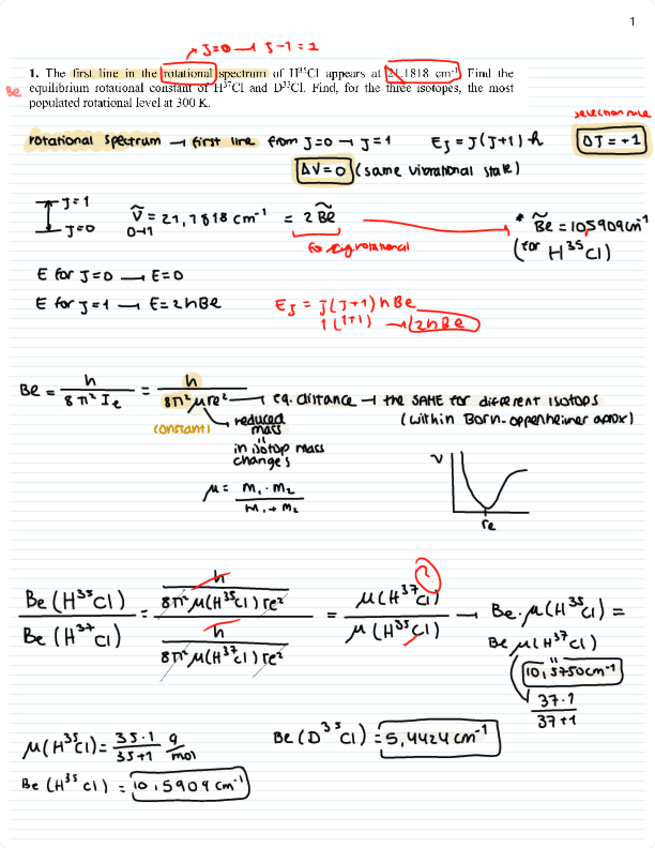 1
J=0 → J-1=1
1. The first line in the rotational spectrum of H³⁵Cl appears at 21.1818 cm⁻¹. Find the
Be equilibrium rotational constant of H³⁷Cl and D³⁵Cl. Find, for the three isotopes, the most
populated rotational level at 300 K.
selection rule
rotational spectrum → first line from J=0 → J=1 EJ = J(J+1)h ΔJ=+1
ΔV=0 (same vibrational state)
J=1
J=0
ṽ = 21,1818 cm⁻¹ = 2 B̃e
0→1
for rig rotational
* B̃e = 10,5909 cm⁻¹
(for H³⁵Cl)
E for J=0 → E=0
E for J=1 → E=2hBe
EJ = J(J+1)hBe
1(1+1) → 2hBe
Be = h / 8π² Ie = h / 8π²μre² → eq. distance → the SAME for different isotops
(within Born-oppenheimer aprox)
(constant)
reduced mass
in isotop mass changes
μ = m₁·m₂ / m₁+m₂
V
re
Be(H³⁵Cl) / Be(H³⁷Cl) = h / 8π²μ(H³⁵Cl)re² / h / 8π²μ(H³⁷Cl)re² = μ(H³⁷Cl) / μ(H³⁵Cl) → Be·μ(H³⁵Cl) =
?
Be μ(H³⁷Cl)
10,5750cm⁻¹
37·1 / 37+1
μ(H³⁵Cl) = 35·1 / 35+1 g/mol
Be(D³⁵Cl) = 5,4424 cm⁻¹
Be (H³⁵Cl) = 10,5909 cm⁻¹